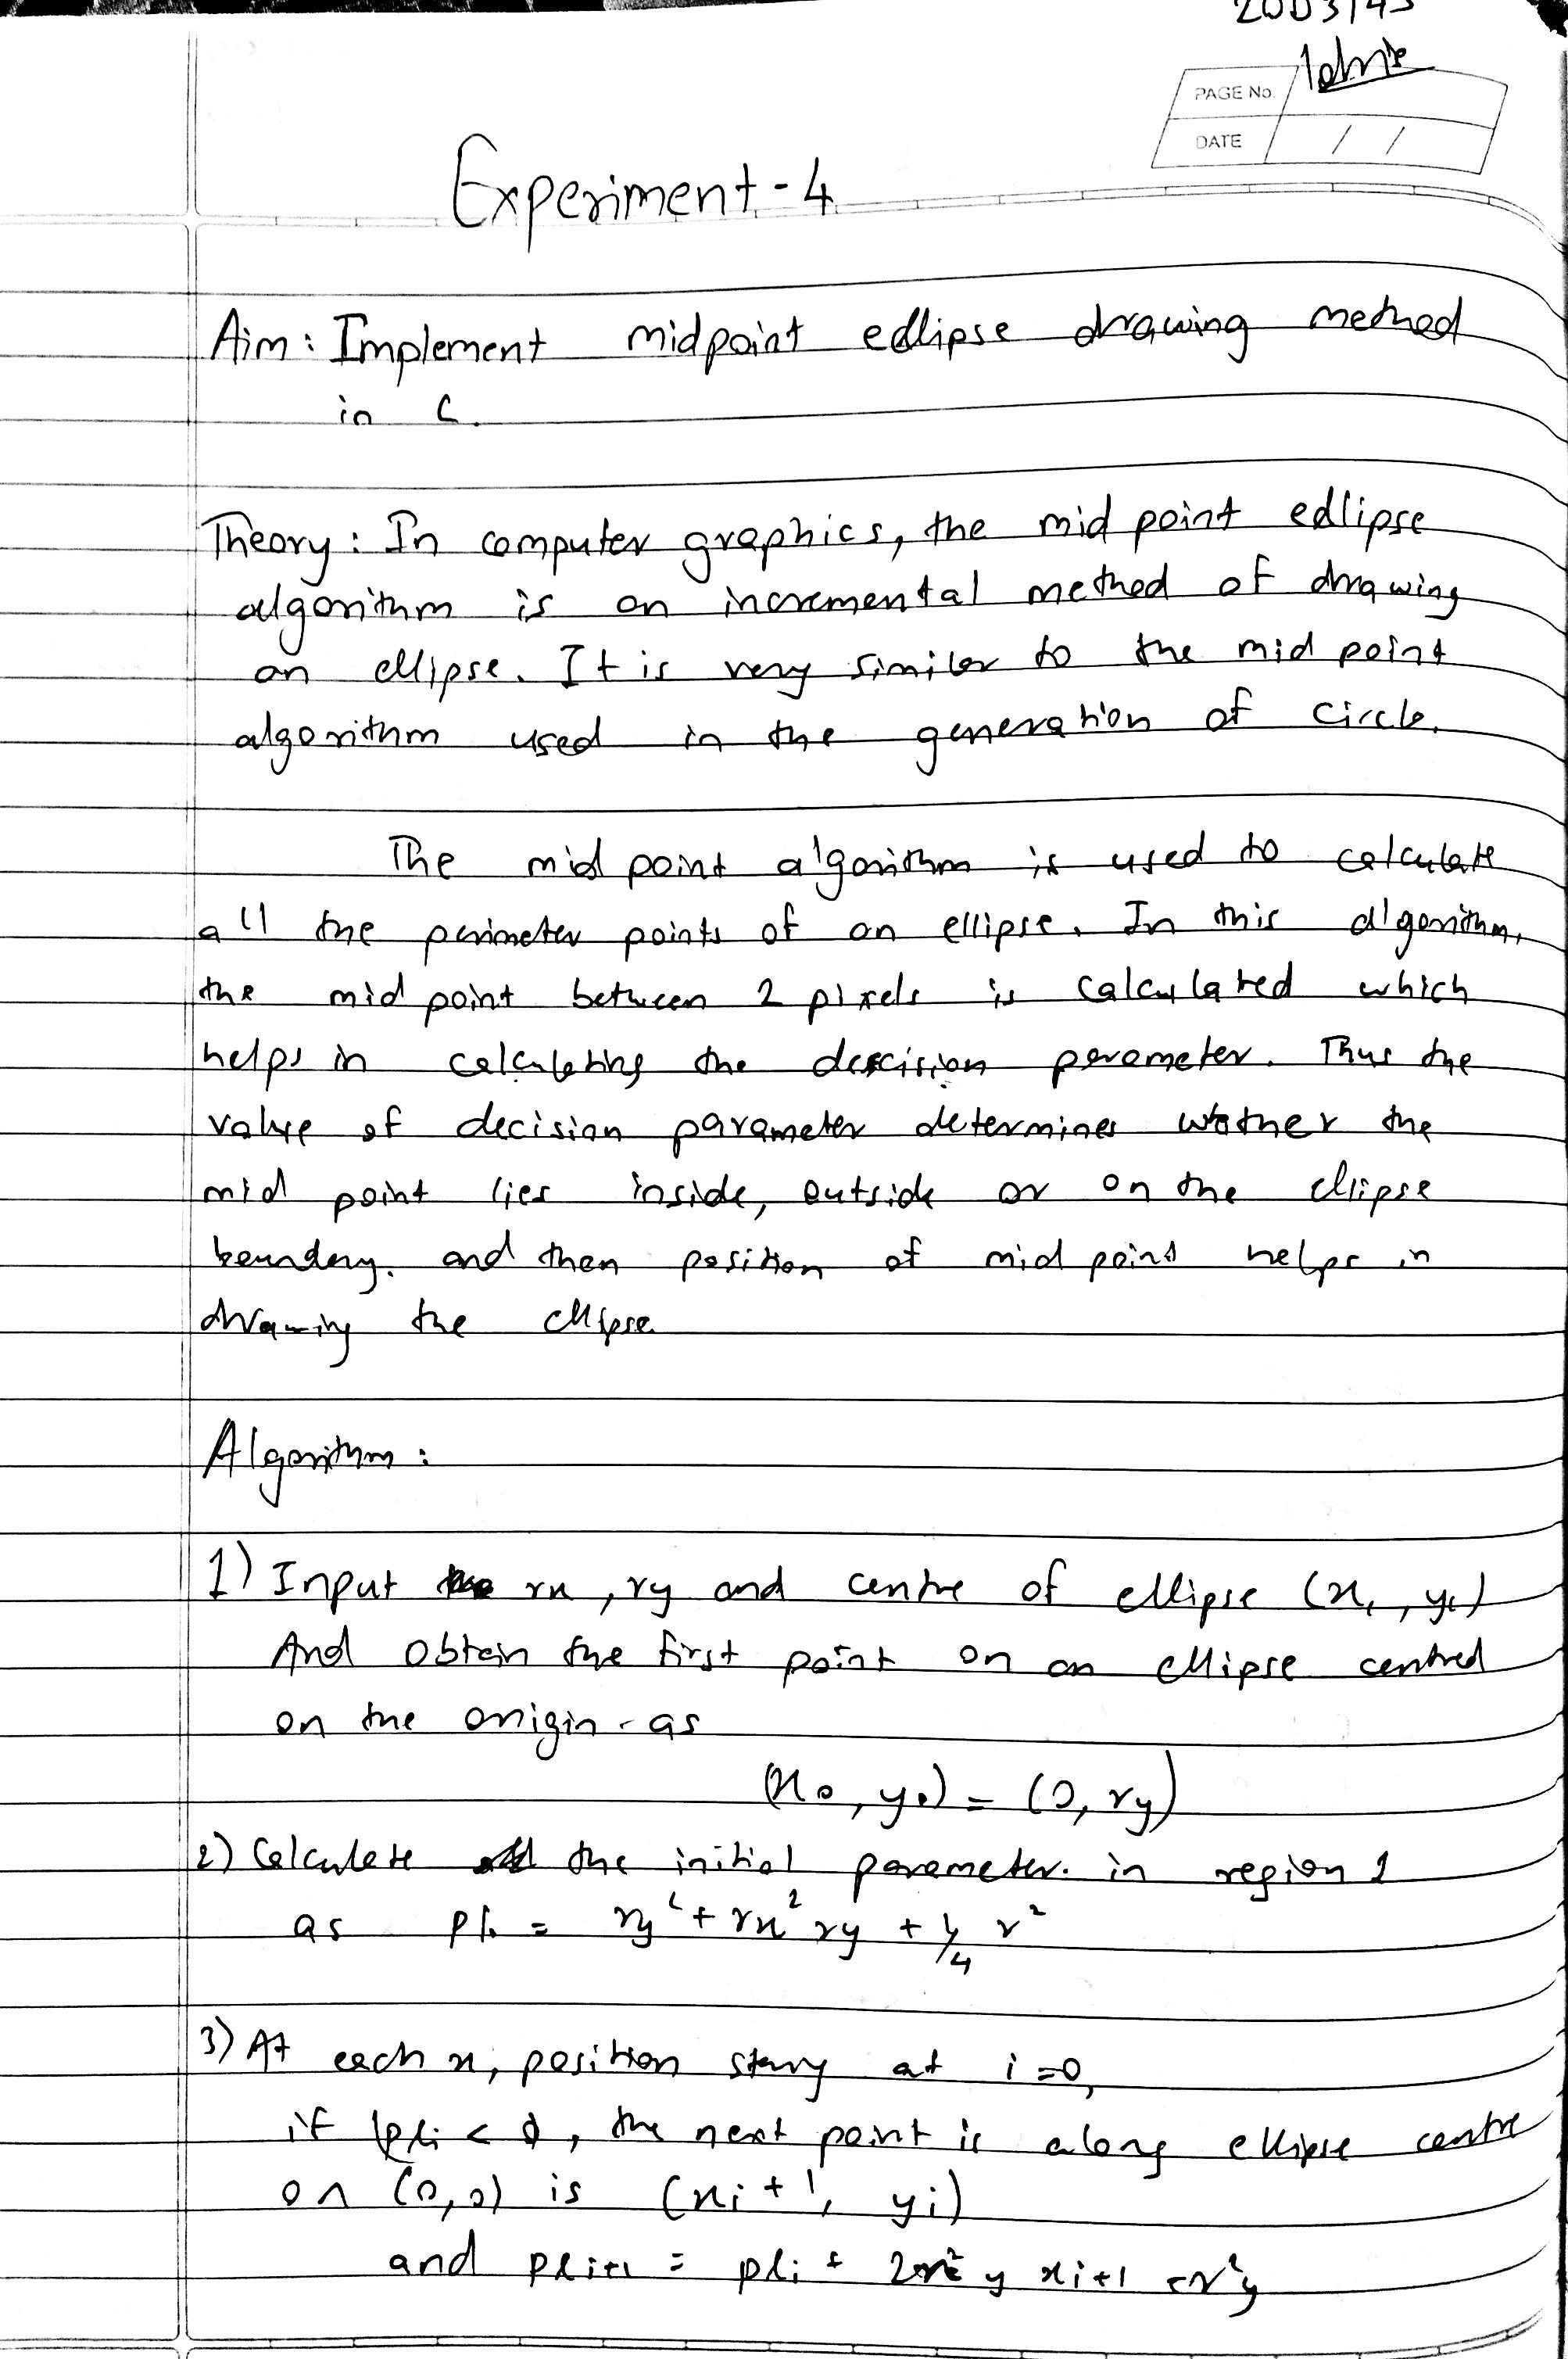 PAGE No.
DATE / /
Experiment-4
Aim: Implement midpoint ellipse drawing method
in C.
Theory: In computer graphics, the mid point ellipse
algorithm is an incremental method of drawing
an ellipse. It is very similar to the mid point
algorithm used in the generation of circle.
The mid point algorithm is used to calculate
all the perimeter points of an ellipse. In this algorithm,
the mid point between 2 pixels is calculated which
helps in calculating the descision parameter. Thus the
value of decision parameter determines wether the
mid point lies inside, outside or on the ellipse
boundary. and then position of mid point helps in
drawing the ellipse.
Algorithm:
1) Input rx, ry and centre of ellipse (xc, yc)
And obtain the first point on an ellipse centred
on the origin as
(x0, y0) = (0, ry)
2) Calculate the initial parameter in region 1
as p10 = ry² + rx² ry + 1/4 r²
3) At each xi position starg at i=0,
if p1i < 0, the next point is along ellipse centre
on (0,0) is (xi+1, yi)
and p1i+1 = p1i + 2r²y xi+1 + r²y